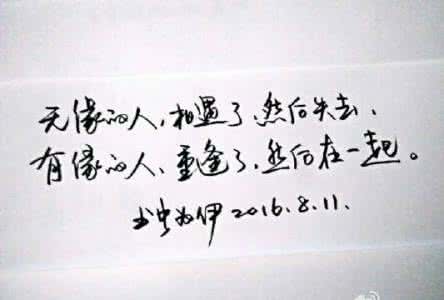 无缘的人,相遇了,然后失去,
有缘的人、重逢了,然后在一起。
书虫为伊 2016.8.11.